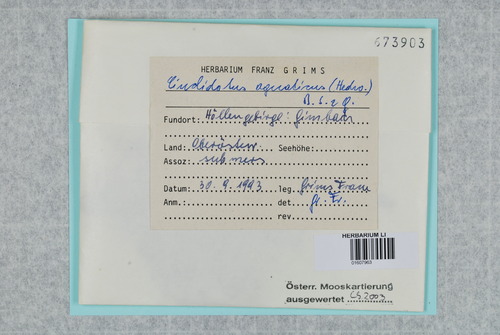 673903
HERBARIUM FRANZ GRIMS
Cinclidotus aquaticus (Hedw.)
B. S. & G.
Fundort: Höllengebirge: Gimbach
Land: Oberösterr. Seehöhe:
Assoz: submers
Datum: 30.9.1993 leg. Grims Franz
Anm.: det. Gr. Fr.
rev.
HERBARIUM LI
Österr. Mooskartierung
ausgewertet CS 2003